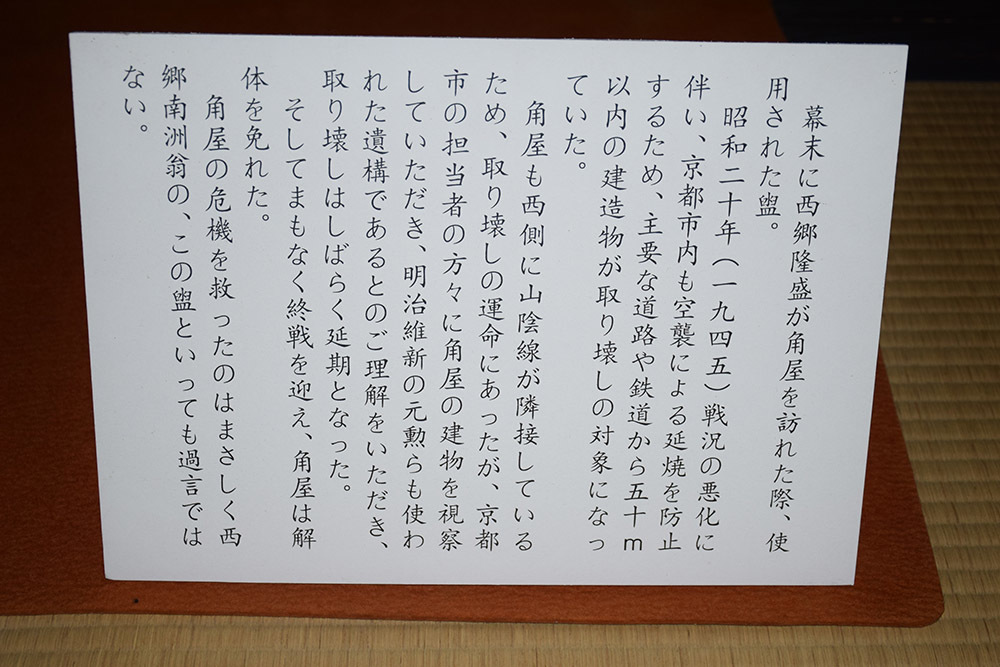 幕末に西郷隆盛が角屋を訪れた際、使
用された盥。
昭和二十年(一九四五)戦況の悪化に
伴い、京都市内も空襲による延焼を防止
するため、主要な道路や鉄道から五十m
以内の建造物が取り壊しの対象になっ
ていた。
角屋も西側に山陰線が隣接している
ため、取り壊しの運命にあったが、京都
市の担当者の方々に角屋の建物を視察
していただき、明治維新の元勲らも使わ
れた遺構であるとのご理解をいただき、
取り壊しはしばらく延期となった。
そしてまもなく終戦を迎え、角屋は解
体を免れた。
角屋の危機を救ったのはまさしく西
郷南洲翁の、この盥といっても過言では
ない。